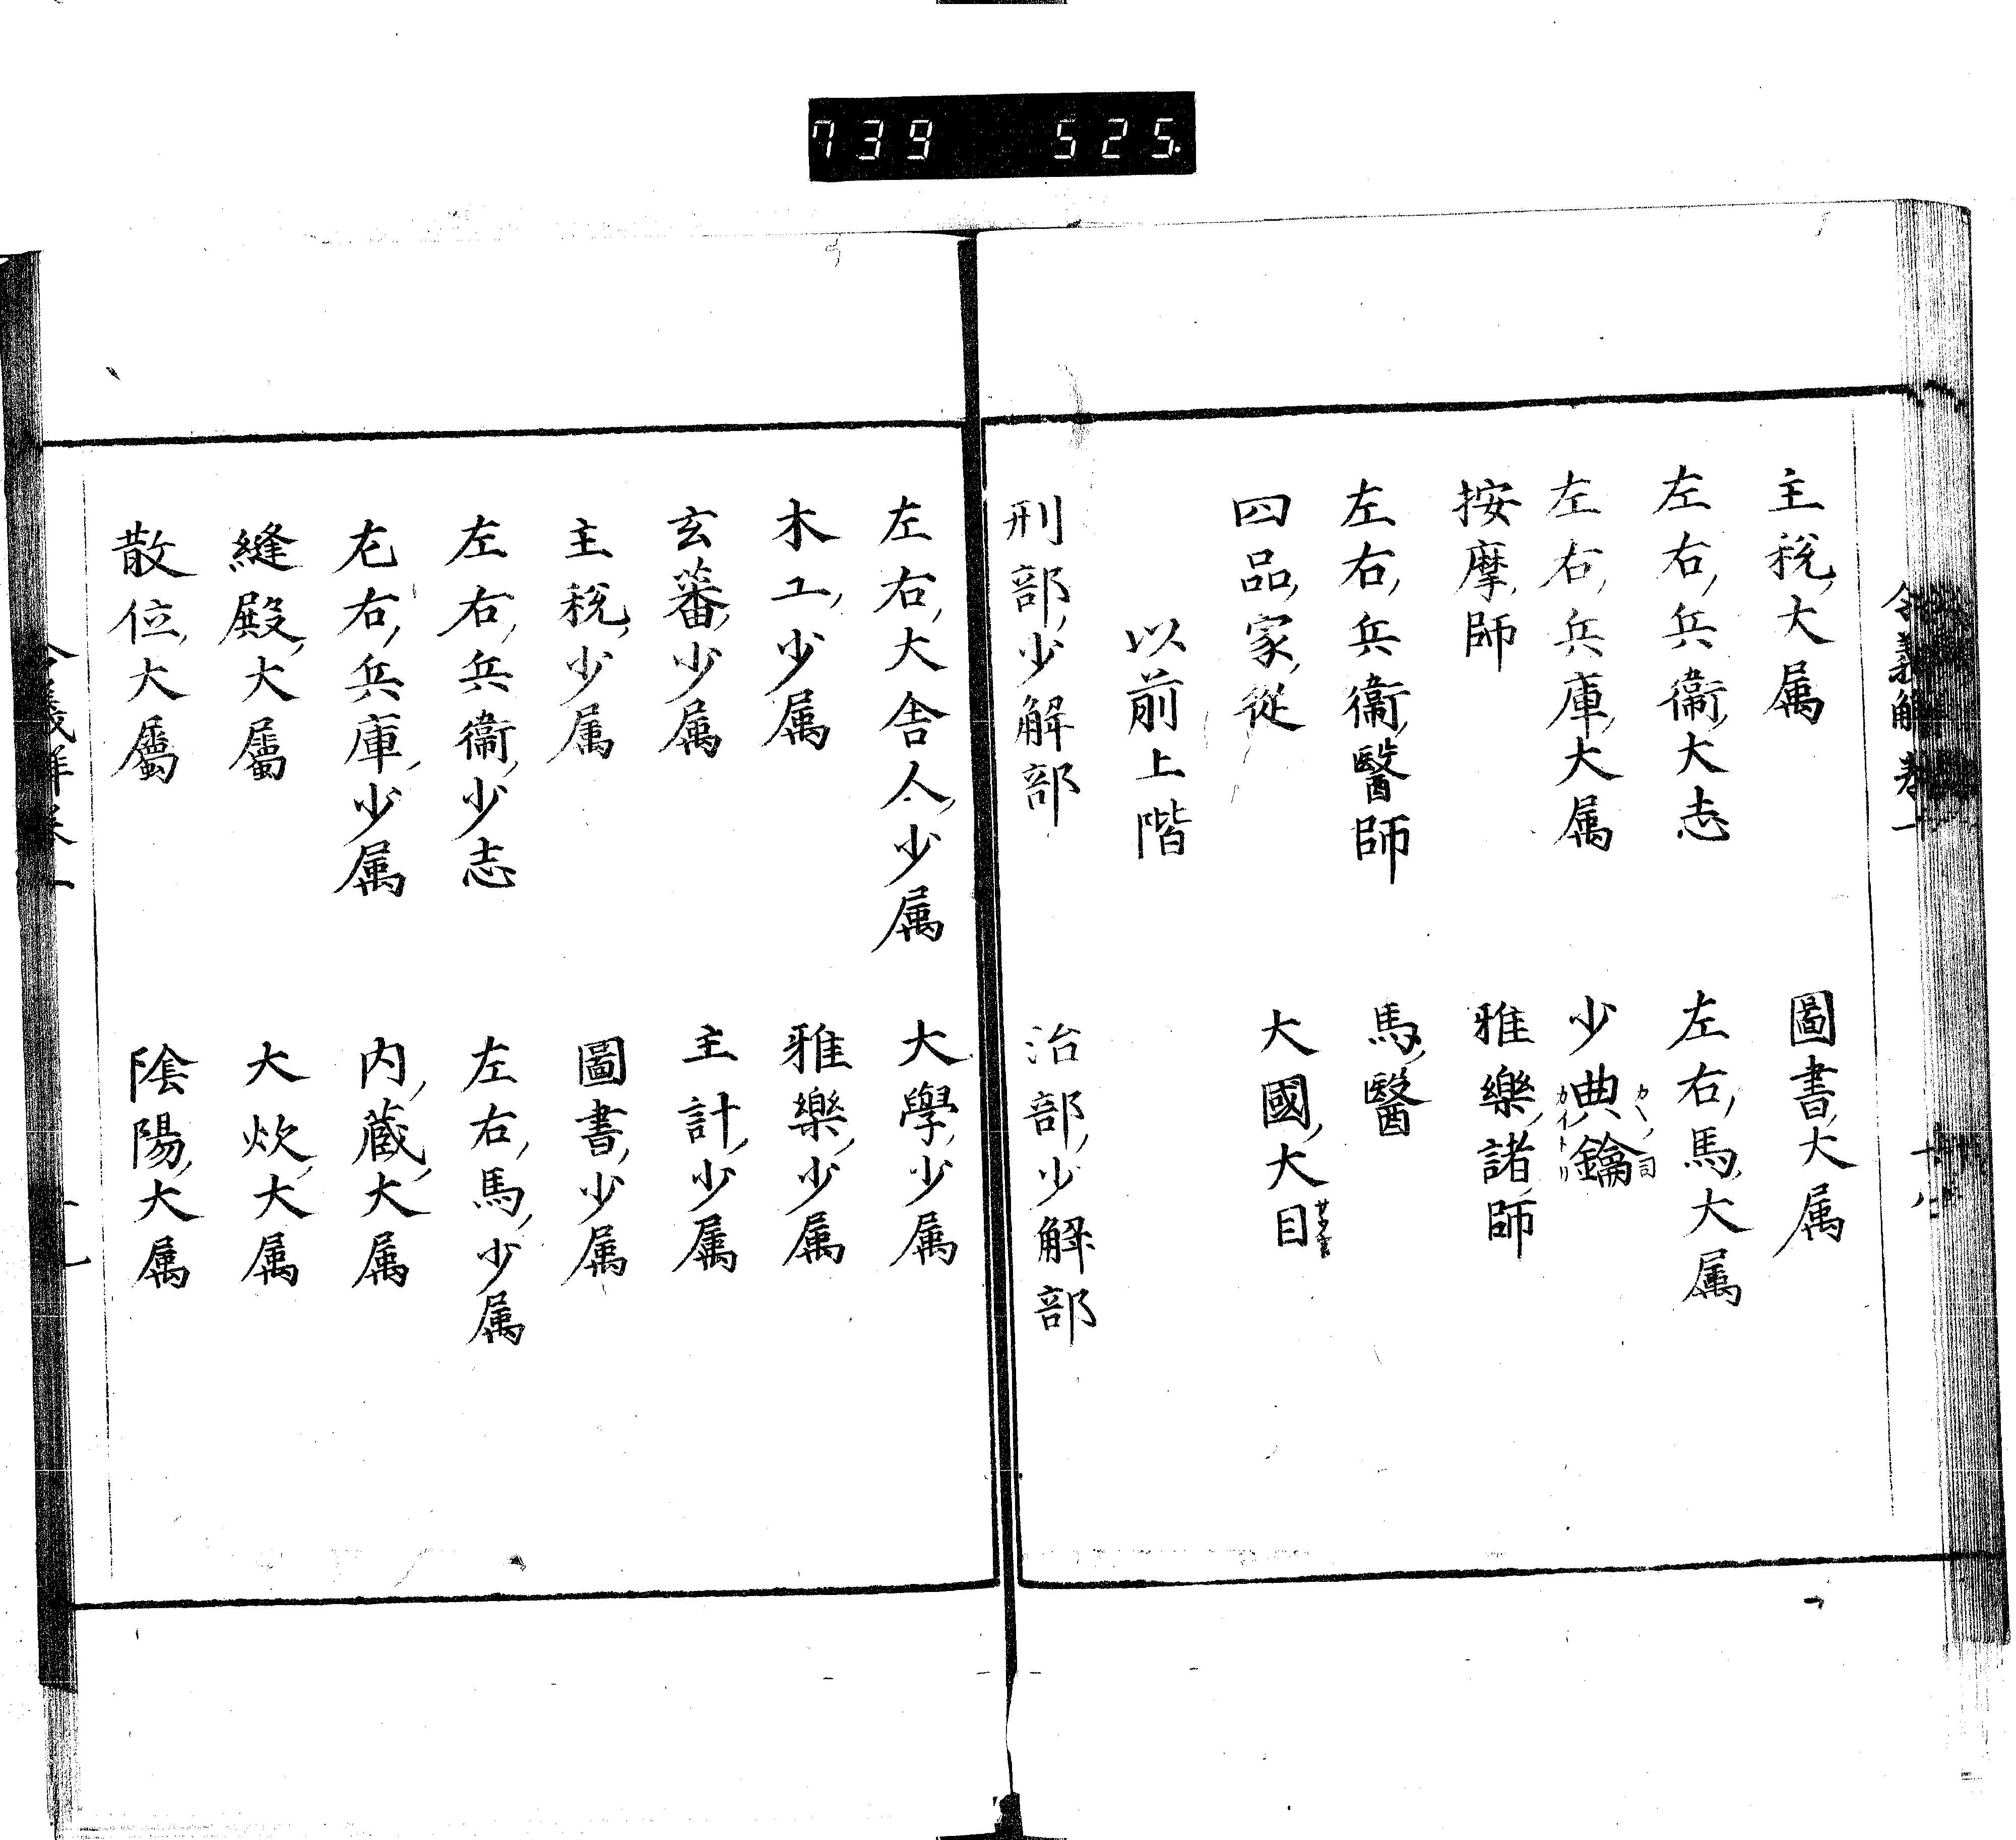 739 525.
令義解卷一
主税大属 圖書大属
左右兵衞大志 左右馬大属
左右兵庫大属 少典鑰
按摩師 雅樂諸師
左右兵衞醫師 馬醫
四品家從 大國大目
以前上階
刑部少解部 治部少解部
左右大舍人少属 大學少属
木工少属 雅樂少属
玄蕃少属 主計少属
主税少属 圖書少属
左右兵衞少志 左右馬少属
左右兵庫少属 内蔵大属
縫殿大屬 大炊大属
散位大屬 陰陽大属